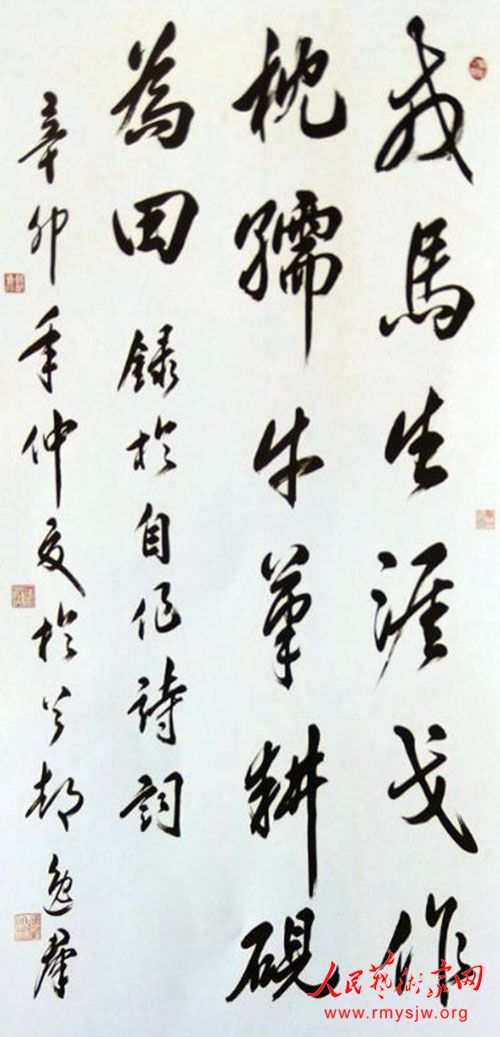 戎馬生涯戈作
枕孺牛筆耕硯
為田 録於自作詩詞
辛卯年仲夏於京都逸群
人民藝術家网
www.rmysjw.org